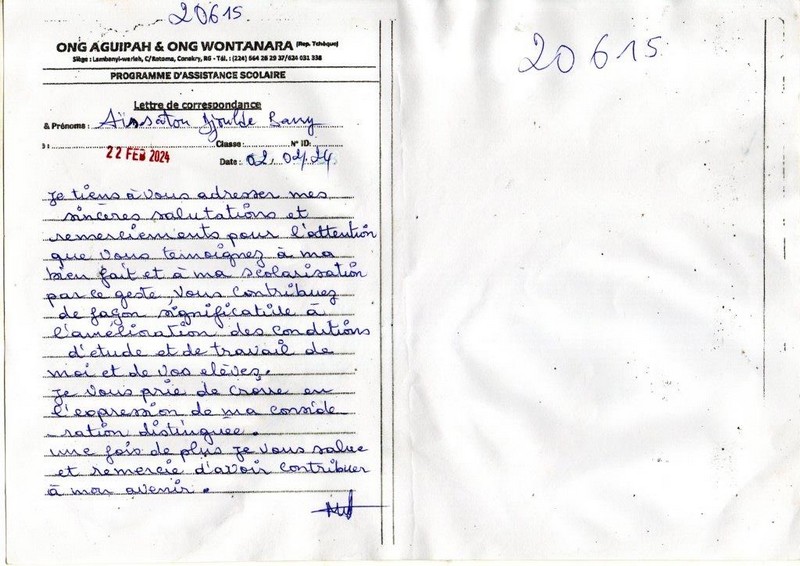 20615.
ONG AGUIPAH & ONG WONTANARA (Rep. Tchèque)
Siège : Lambanyi-warieh, C/Ratoma, Conakry, RG - Tél. : (224) 664 28 29 37/624 031 338
PROGRAMME D'ASSISTANCE SCOLAIRE
Lettre de correspondance
& Prénoms : Aïssatou Djoulde Barry
Classe : N° ID:
22 FEB 2024
Date : 02/02/24
je tiens à vous adresser mes
sincères salutations et
remerciements pour l'attention
que vous temoignez à ma
bien fait et à ma scolarisation
par ce geste, vous contribuez
de façon significatile à
l'amélioration des conditions
d'etude et de travail de
moi et de vos elevez.
je vous prie de croire en
l'expression de ma conside
-ration distinguee.
une fois de plus je vous salue
et remercie d'avoir contribuer
à mon avenir.
20615